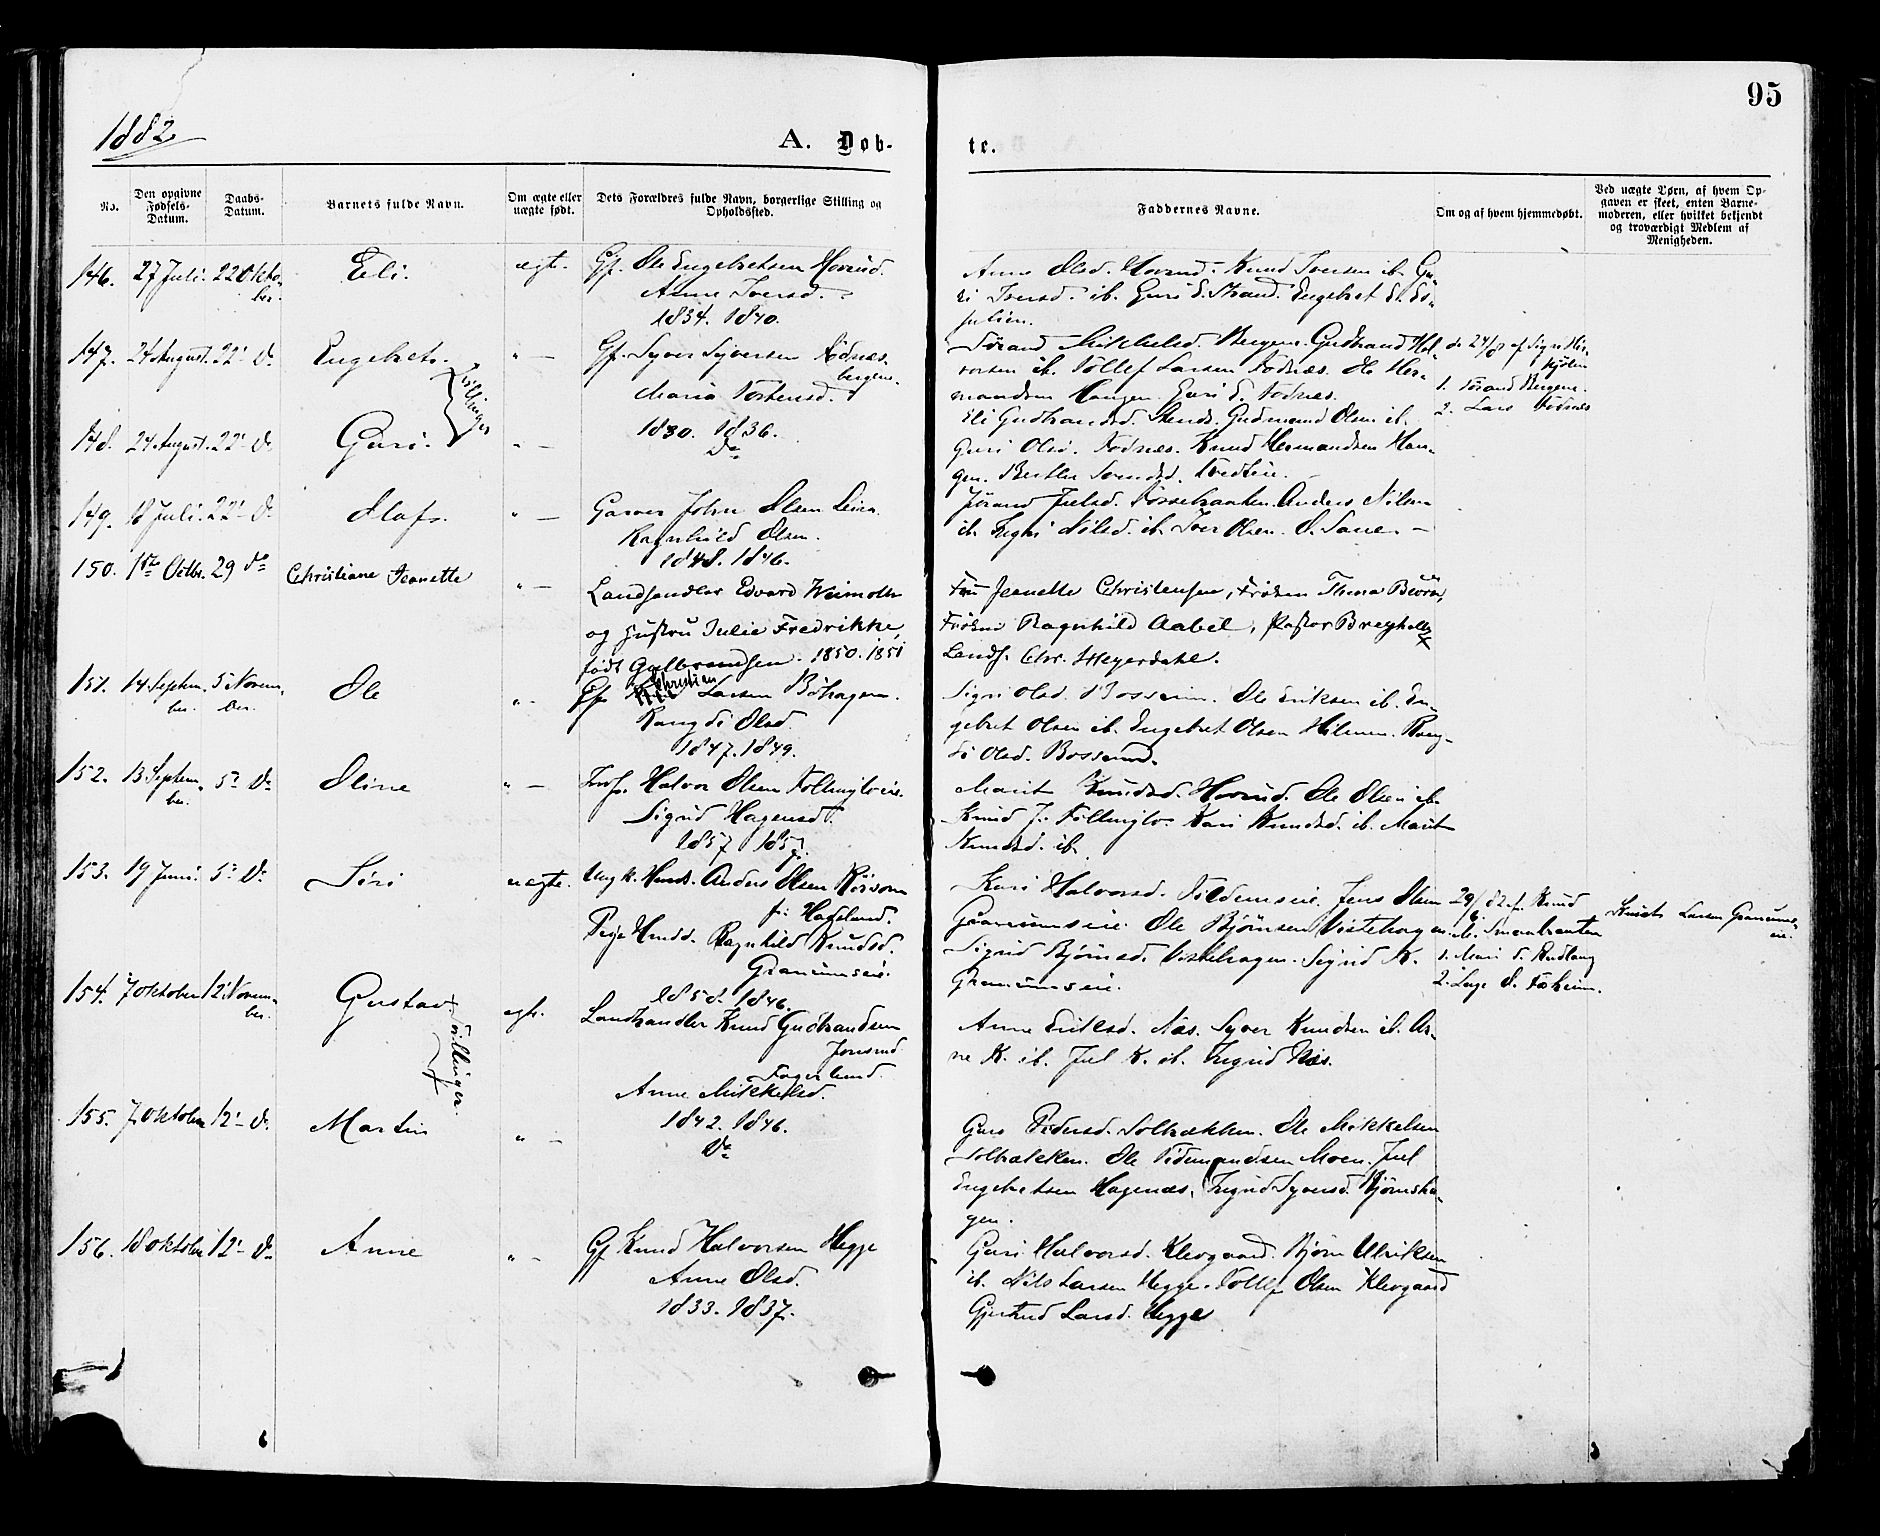 95
1882
A. Døb-
te.
No.
Den opgivne Fødsels-Datum.
Daabs-Datum.
Barnets fulde Navn.
Om ægte eller uægte født.
Dets Forældres fulde Navn, borgerlige Stilling og Opholdssted.
Faddernes Navne.
Om og af hvem hjemmedøbt.
Ved uægte Børn, af hvem Op-
gaven er skeet, enten Barne-
moderen, eller hvilket bekjendt
og troværdigt Medlem af
Menigheden.
146. 27 Juli. 22 Okto-
ber.
Eli.
ægt.
Gf. Ole Engebretsen Hovrud.
Anne Iversd.
1834. 1840.
Anne Olsd. Hovrud. Knud Iversen ib. Gu-
ri Iversd. ib. Guri E. Strand. Engebret
147. 24 August. 22 D.
Engebret.
" —
Gf. Syver Syversen Fødnæs-
bergene.
Maria Torstensd.
1830. 1836.
Jørand Mikkelsd. Bergene. Gudbrand Hal-
vorsen ib. Tollef Larsen Fodnæs. Ole Her-
mandsen Haugen. Guri S. Fodnæs.
1. Jørand Bergene.
2. Lars Fødnæs
Tvillinger
148. 24 August. 22 D.
Guri.
" —
Do
Eli Gudbrandsd. Gudmund Olsen ib.
Guri Olsd. Fodnæs. Knud Hermandsen Hau-
gen.
149. 18 Juli. 22 D.
Olaf.
" —
Garver John Olsen Leira.
Ragnhild Olsen.
1848. 1846.
Jørand Juelsd. Anders Nilsen
ib. Ingri Nilsd. ib. Iver Olsen.
150. 1ste Octbr. 29 do
Christiane Jeanette
" —
Landhandler Edvard
og Hustru Julie Fredrikke,
født Gulbrandsen. 1850. 1851
Fru Jeanette Christensen, Frøken Thina
Frøken Ragnhild Aabel, Pastor
Landh. Chr. Heyerdahl.
151. 14 Septem-
ber. 5 Novem-
ber.
Ole
" —
Gf. Christian Larsen Bøhagen.
Rangdi Olsd.
1847. 1849.
Sigri Olsd. Ole Eriksen ib. En-
gebret Olsen ib. Engebret Olsen Hilmen. Rang-
di Olsd.
152. 13 Septem-
ber. 5 D.
Oline
" —
Halvor Olsen
Sigrid Hagensd.
1857 1857.
Marit Knudsd. Hovrud. Ole Olsen ib.
Knud J. Kari Knudsd. ib. Marit
Knudsd. ib.
153. 19 Juni. 5 D.
Siri
uægte.
Ungk. Anders Olsen
fr. Hadeland.
Pige Ragnhild Knudsd.
Granumseie.
1858. 1846.
Kari Halvorsd. Jens Olsen
Granumseie. Ole Bjørnsen Vestehagen.
Sigrid Bjørnsd. Vestehagen. Sigrid K.
Granumseie.
1. Mari S.
2. Inge O.
Knud Larsen Granums-
eie.
154. 7 Oktober 12 Novem-
ber.
Gustav
egt.
Landhandler Knud Gudbrandsen
Fagerlund.
Anne Mikkelsd.
1842. 1846.
Anne Eriksd. Næs. Syver Knudsen ib. Ar-
ne K. ib. Juel K. ib. Ingrid Næs.
Tvillinger.
155. 7 Oktober 12 D.
Martin
" —
Do
Guri Pedersd. Solbrækken. Ole Mikkelsen
Solbrækken. Ole Tidemandsen Moen. Juel
Engebretsen Hagenæs. Ingrid Syversd. Bjørnsha-
gen.
156. 18 Oktober 12 D.
Anne
" —
Gf. Knud Halvorsen Hegge
Anne Olsd.
1833. 1837.
Guri Halvorsd. Klevgaard. Bjørn Ulriksen
ib. Nils Larsen Hegge. Tollef Olsen Klevgaard
Gjertrud Larsd. Hegge